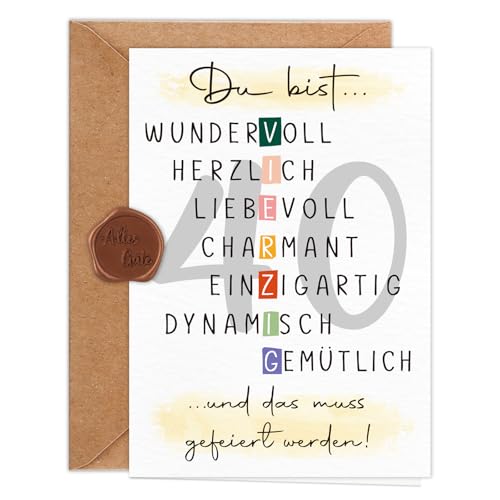 Du bist...
WUNDERVOLL
HERZLICH
LIEBEVOLL
CHARMANT
EINZIGARTIG
DYNAMISCH
GEMÜTLICH
40
...und das muss
gefeiert werden!
Alles
Gute